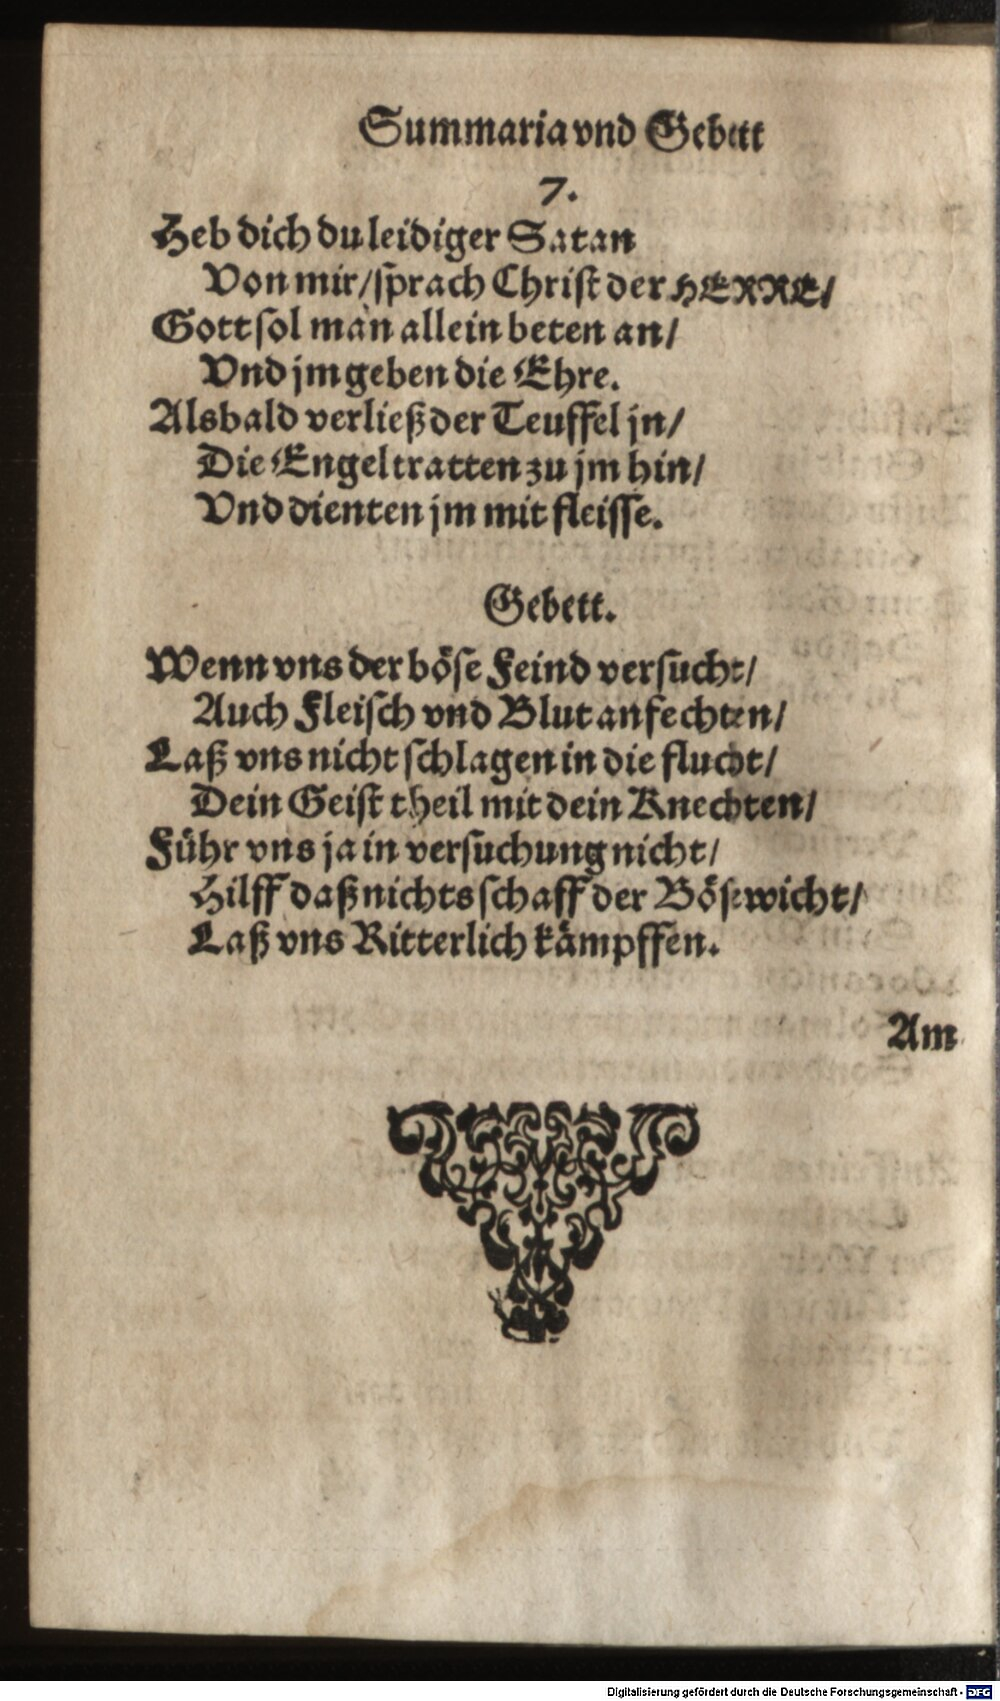 Summaria vnd Gebett
7.
Heb dich du leidiger Satan
Von mir/sprach Christ der HERRE/
Gott sol man allein beten an/
Vnd jm geben die Ehre.
Alsbald verließ der Teuffel jn/
Die Engel tratten zu jm hin/
Vnd dienten jm mit fleisse.
Gebett.
Wenn vns der böse Feind versucht/
Auch Fleisch vnd Blut anfechten/
Laß vns nicht schlagen in die flucht/
Dein Geist theil mit dein Knechten/
Führ vns ja in versuchung nicht/
Hilff daß nichts schaff der Bösewicht/
Laß vns Ritterlich kämpffen.
Am
Digitalisierung gefördert durch die Deutsche Forschungsgemeinschaft - DFG